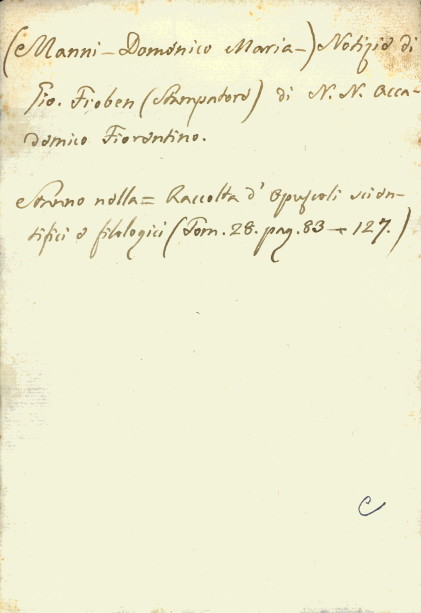 (Manni - Domenico Maria -) Notizie di
Gio. Froben (Stampatore) di N. N. Acca-
demico Fiorentino.
Stanno nella = Raccolta d' Opuscoli scien-
tifici e filologici (Tom. 28. pag. 83 - 127.)
C